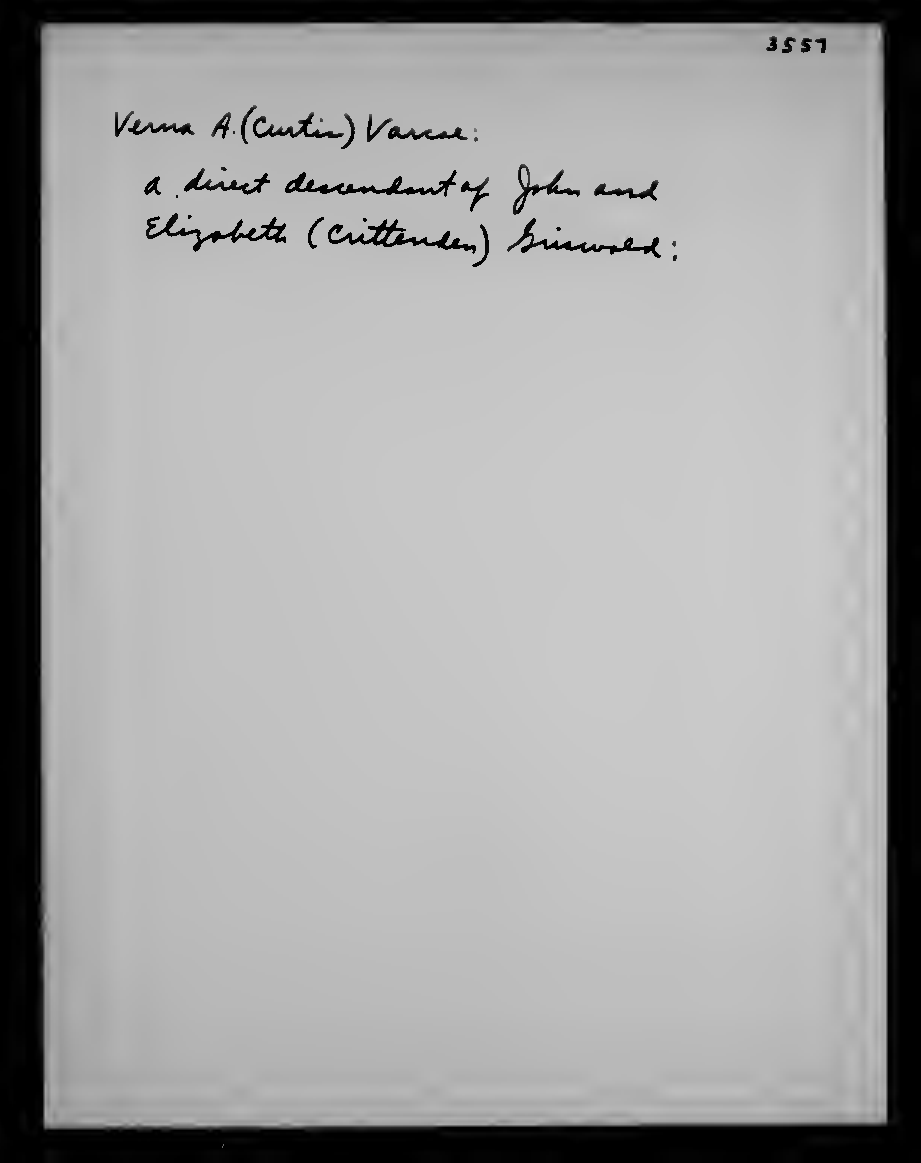 3557
Verna A. (Curtis) Varcoe:
a direct descendant of John and
Elizabeth (Crittenden) Griswold: